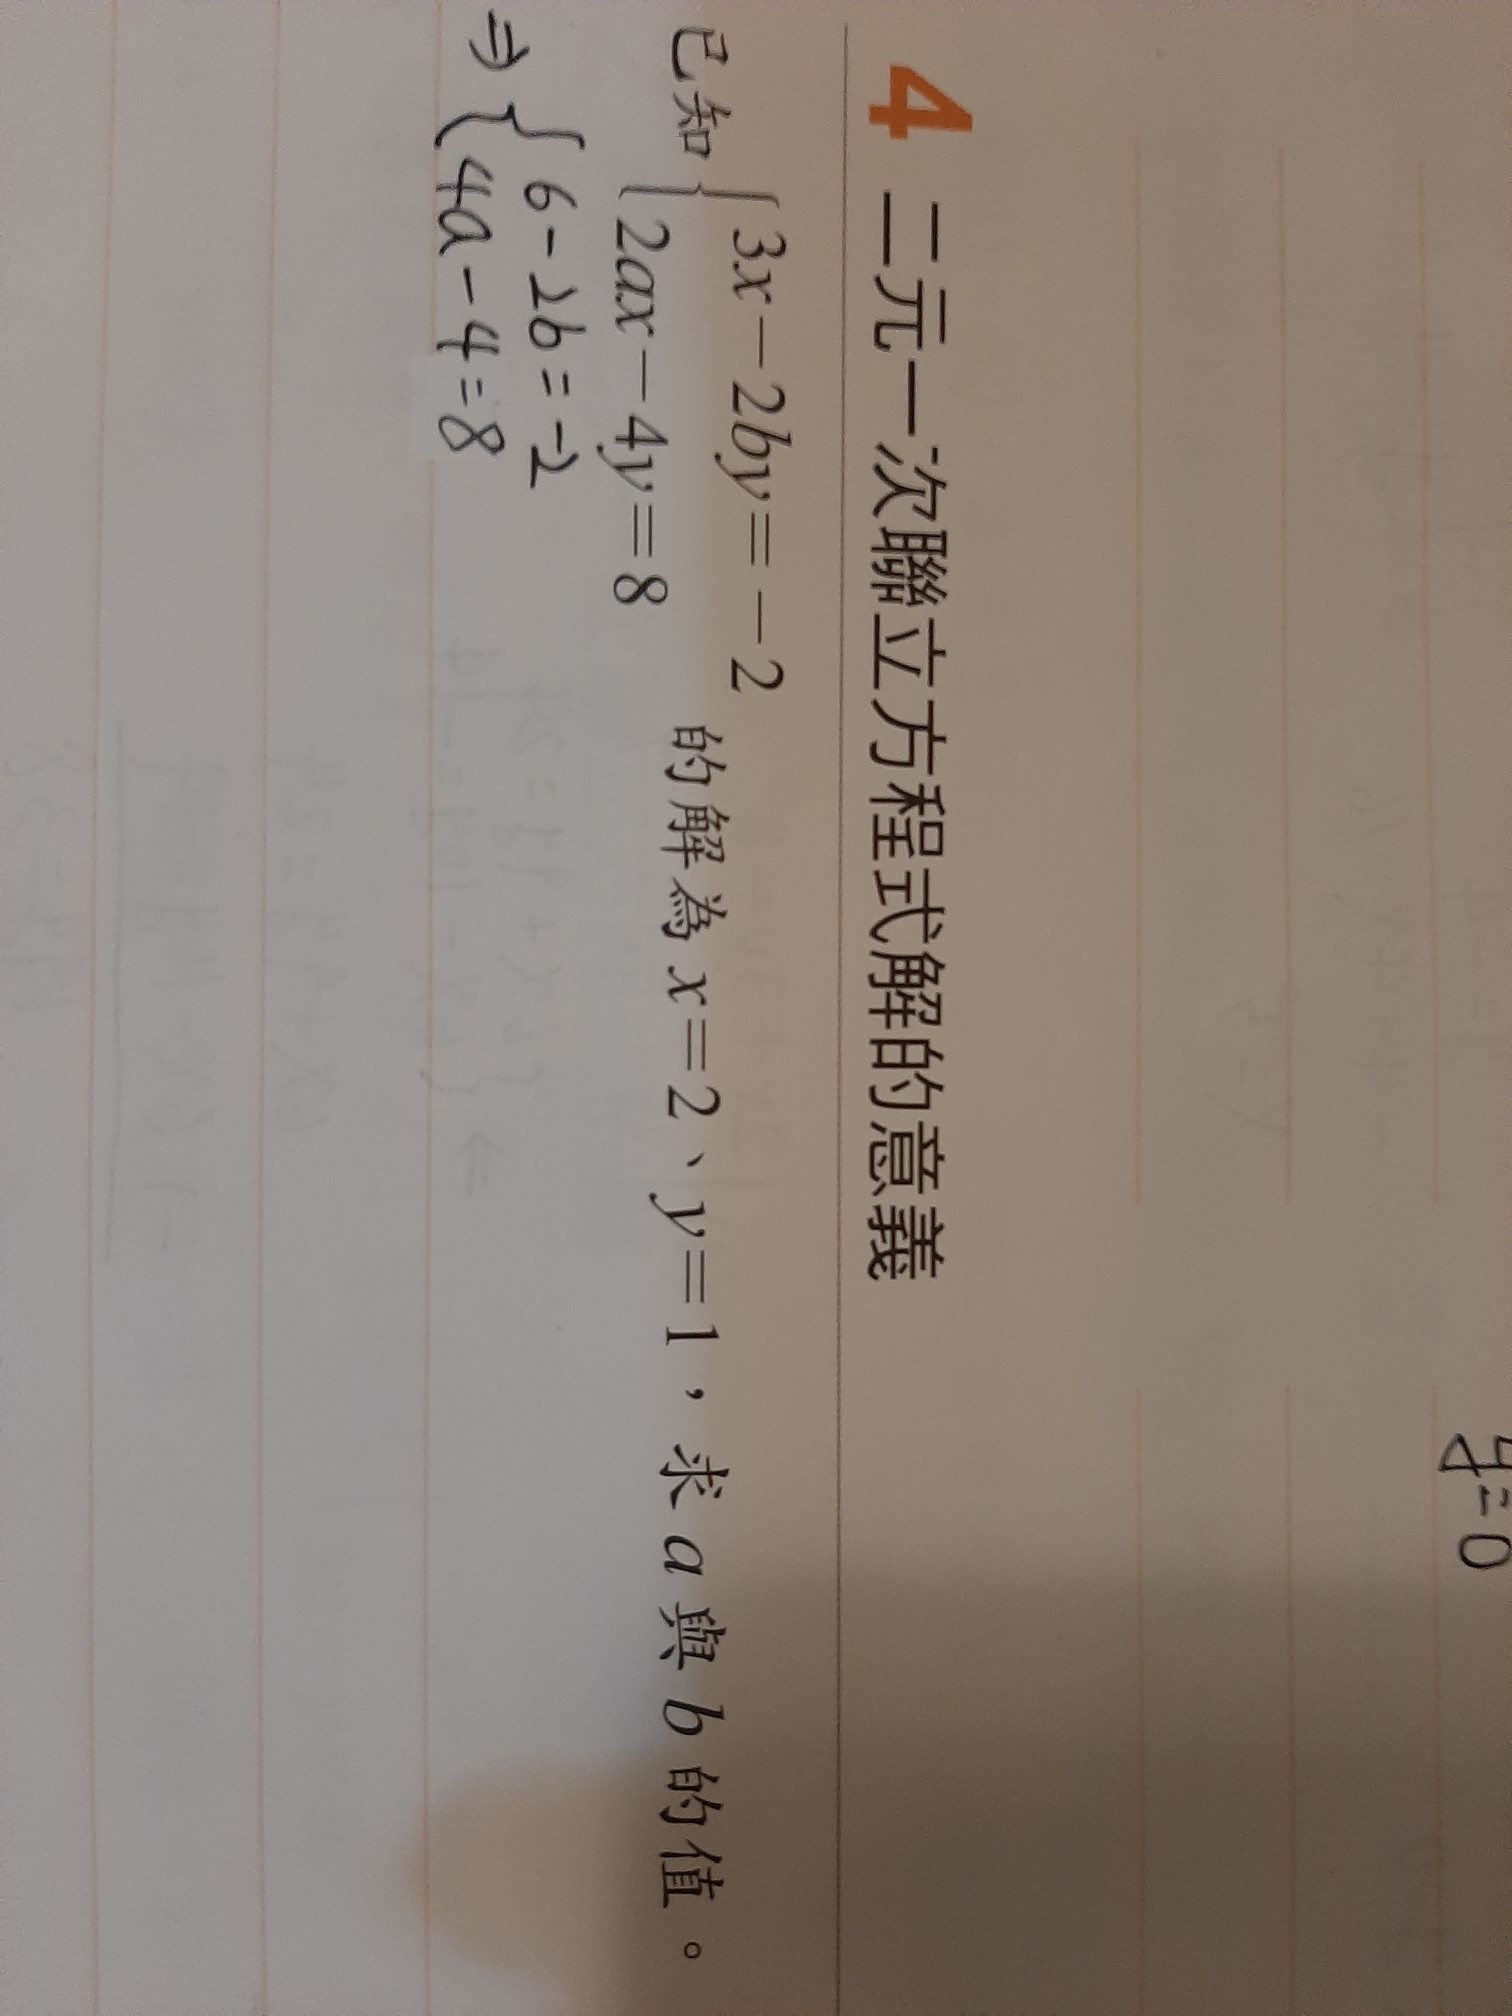 y=0
4 二元一次聯立方程式解的意義
已知 { 3x-2by=-2
2ax-4y=8 的解為 x=2、y=1,求 a 與 b 的值。
⇒ { 6-2b=-2
4a-4=8